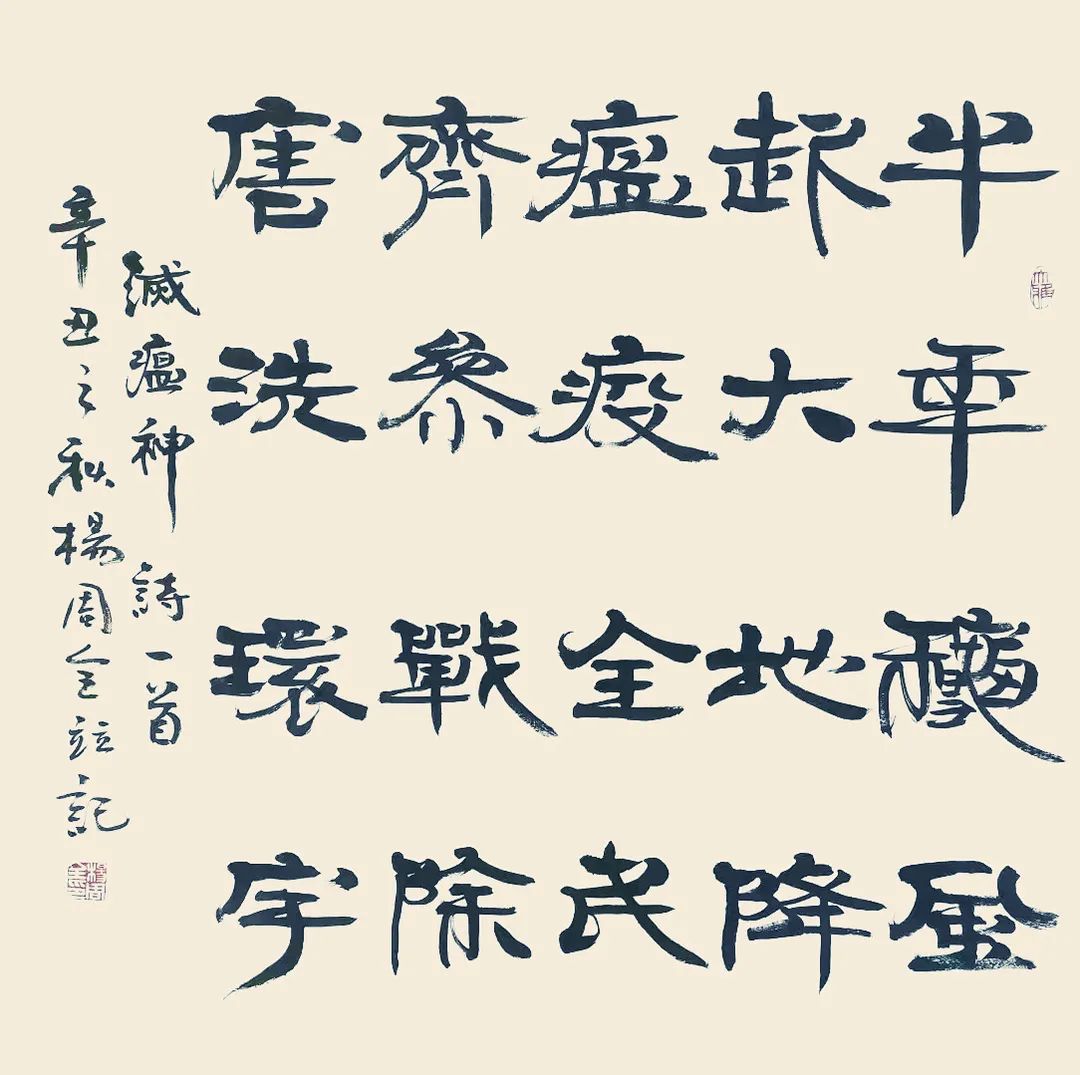 牛年風
起大地降
瘟疫全民
齊參戰除
害洗環宇
滅瘟神詩一首
辛丑之秋楊周全竝記